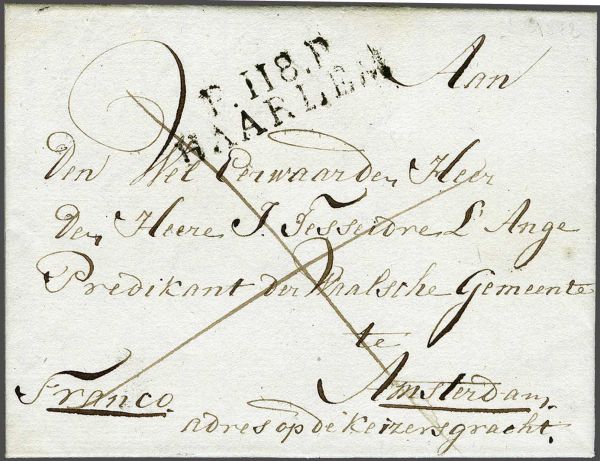 P.118.P.
HAARLEM
Aan
Den Wel Eerwaarden Heer
Den Heere J. Tesseidre L'Ange
Predikant der Waalsche Gemeente
te
Franco. Amsterdam.
adres op de keizersgracht.